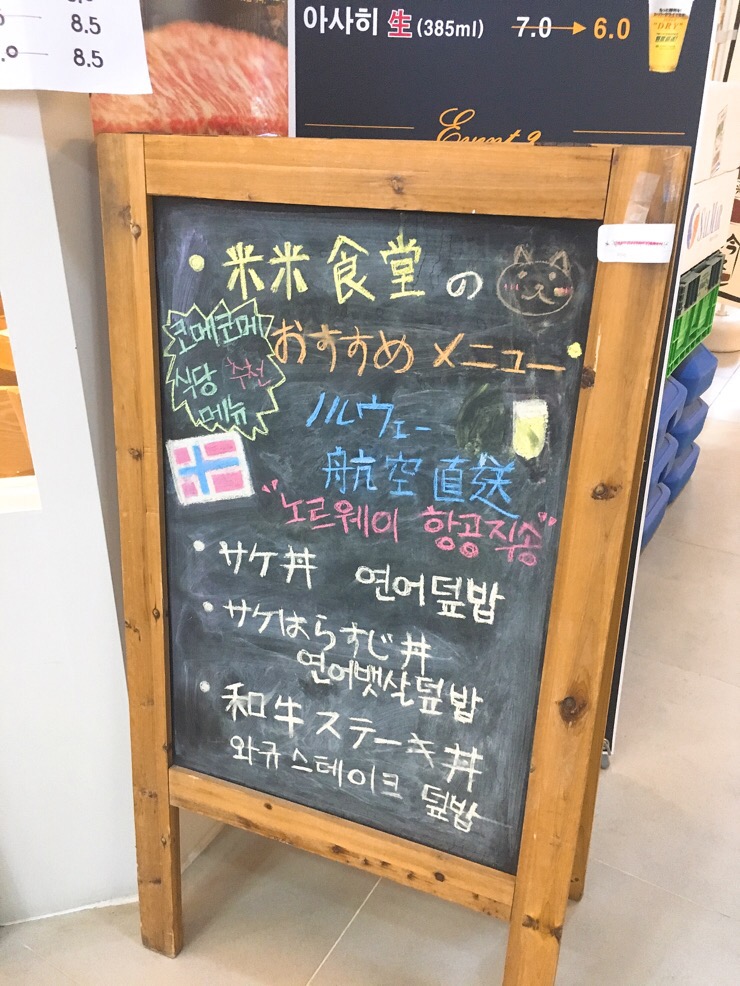 8.5
8.5
아사히 生 (385ml) 7.0 → 6.0
米米食堂の
코메코메
식당 추천
메뉴
おすすめ メニュー
ノルウェー
航空直送
"노르웨이 항공직송"
・サケ丼 연어덮밥
・サケはらすじ丼
연어뱃살덮밥
・和牛ステーキ丼
와규스테이크 덮밥